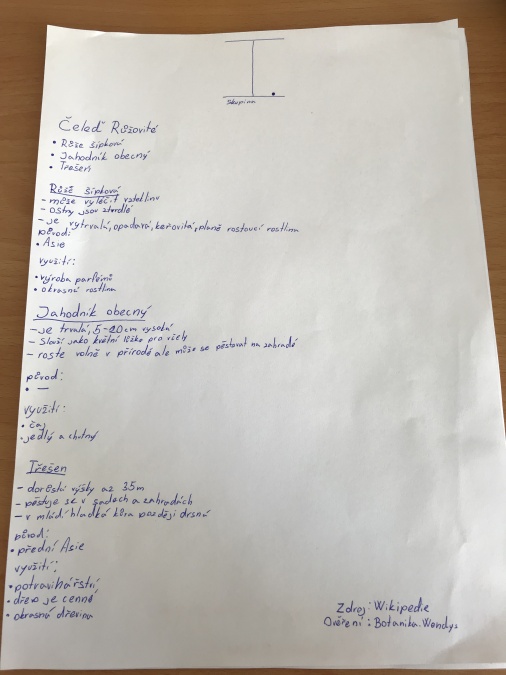 I.
skupina
Čeleď Růžovité
• Růže šípková
• Jahodník obecný
• Třešeň
Růže šípková
- může vyléčit vzteklinu
- ostny jsou ztvrdlé
- je vytrvalá, opadavá, keřovitá, planě rostoucí rostlina
původ:
• Asie
využití:
• výroba parfémů
• okrasná rostlina
Jahodník obecný
- je trvalá, 5-20cm vysoká
- Slouží jako květní lůžko pro včely
- roste volně v přírodě ale může se pěstovat na zahradě
původ:
• —
využití:
• čaj
• jedlý a chutný
Třešen
- dorůstá výšky až 35m
- pěstuje se v sadech a zahradách
- v mládí hladká kůra později drsná
původ:
• přední Asie
využití:
• potravinářství
• dřevo je cenné
• okrasná dřevina
Zdroj: Wikipedie
Ověření: Botanika.Wendys